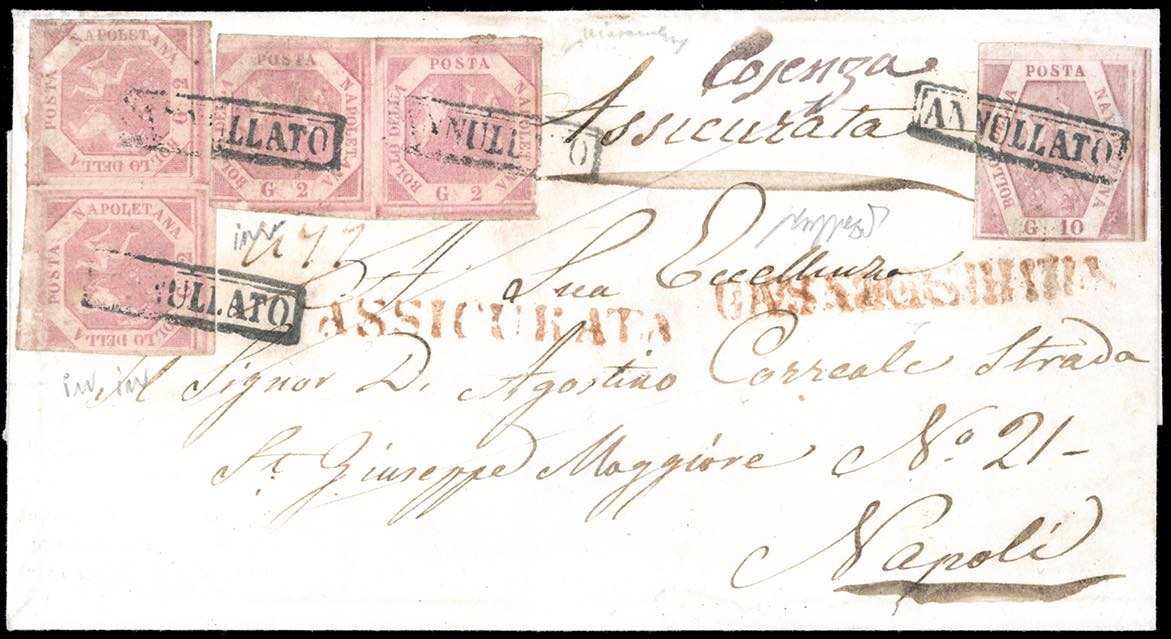 POSTA NAPOLETANA BOLLO DELLA G 2
POSTA NAPOLETANA BOLLO DELLA G 2
POSTA NAPOLETANA BOLLO DELLA G. 2
POSTA NAPOLETANA BOLLO DELLA G. 2
POSTA NA BOLLO G. 10
ANNULLATO
ANNULLATO
ANNULLATO
ANNULLATO
Cosenza
Assicurata
A Sua Eccellenza
ASSICURATA
Il Signor D. Agostino Correale Strada
St. Giuseppe Maggiore No. 21-
Napoli